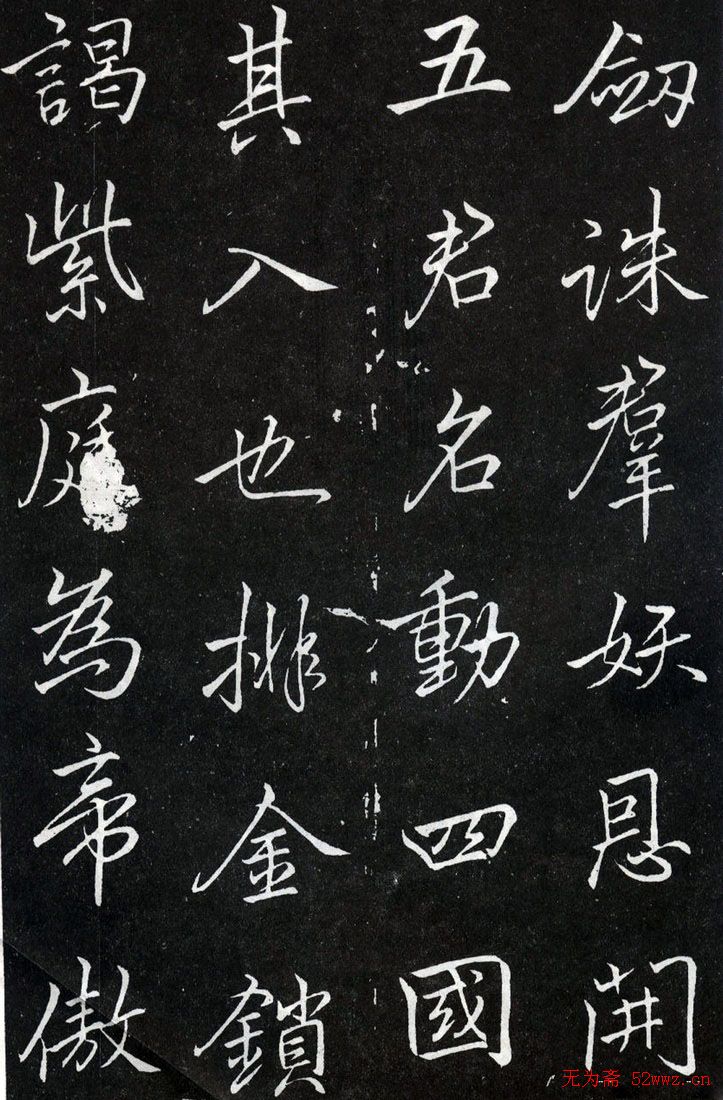 劔誅羣妖恩開
五君名動四國
其入也排金鎖
謁紫庭為帝傲
无为斋 52wwz.cn